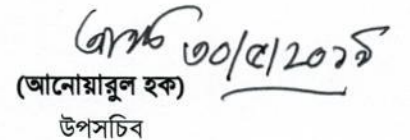 ৩০/৫/২০১৯
(আনোয়ারুল হক)
উপসচিব